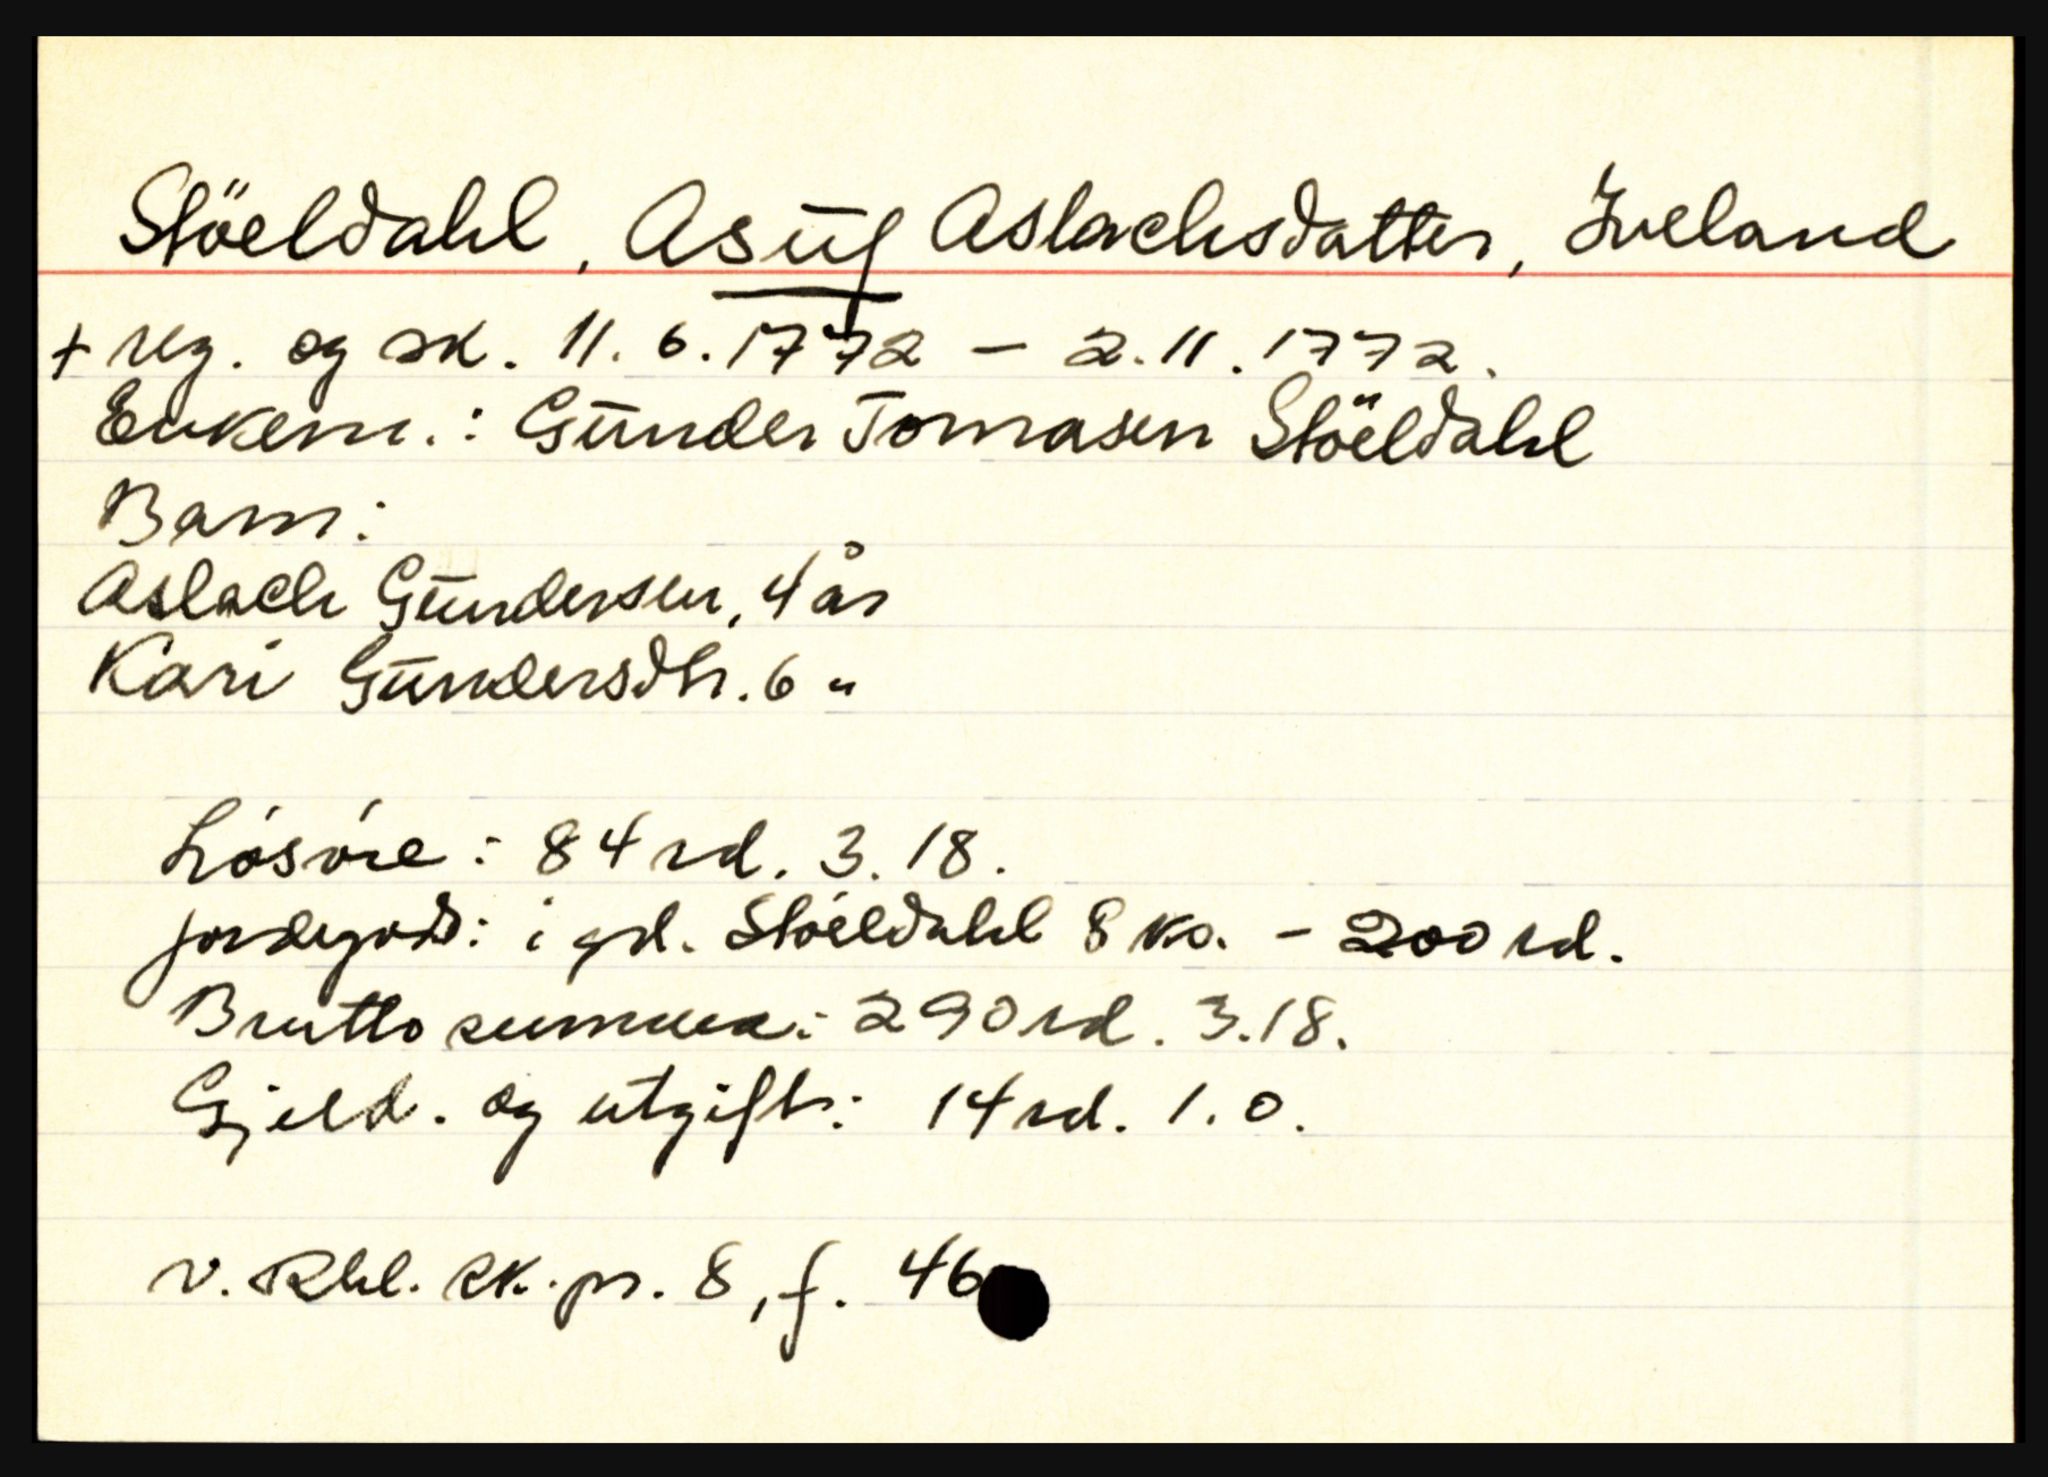 Stöeldahl, Asūf Aslachsdatter, Iveland
+ reg. og sk. 11.6.1772 – 2.11.1772.
Enkem.: Gūnder Tomasen Stöeldahl
Barn:
Aslach Gūndersen, 4 år
Kari Gūndersdtr. 6 "
Lösöre: 84 rd. 3. 18.
jordegods: i gd. Stöeldahl 8 ks. – 200 rd.
Brutto summa: 290 rd. 3.18.
Gjeld. og utgifter: 14 rd. 1. 0.
v. Rbl. sk. pr. 8, f. 46